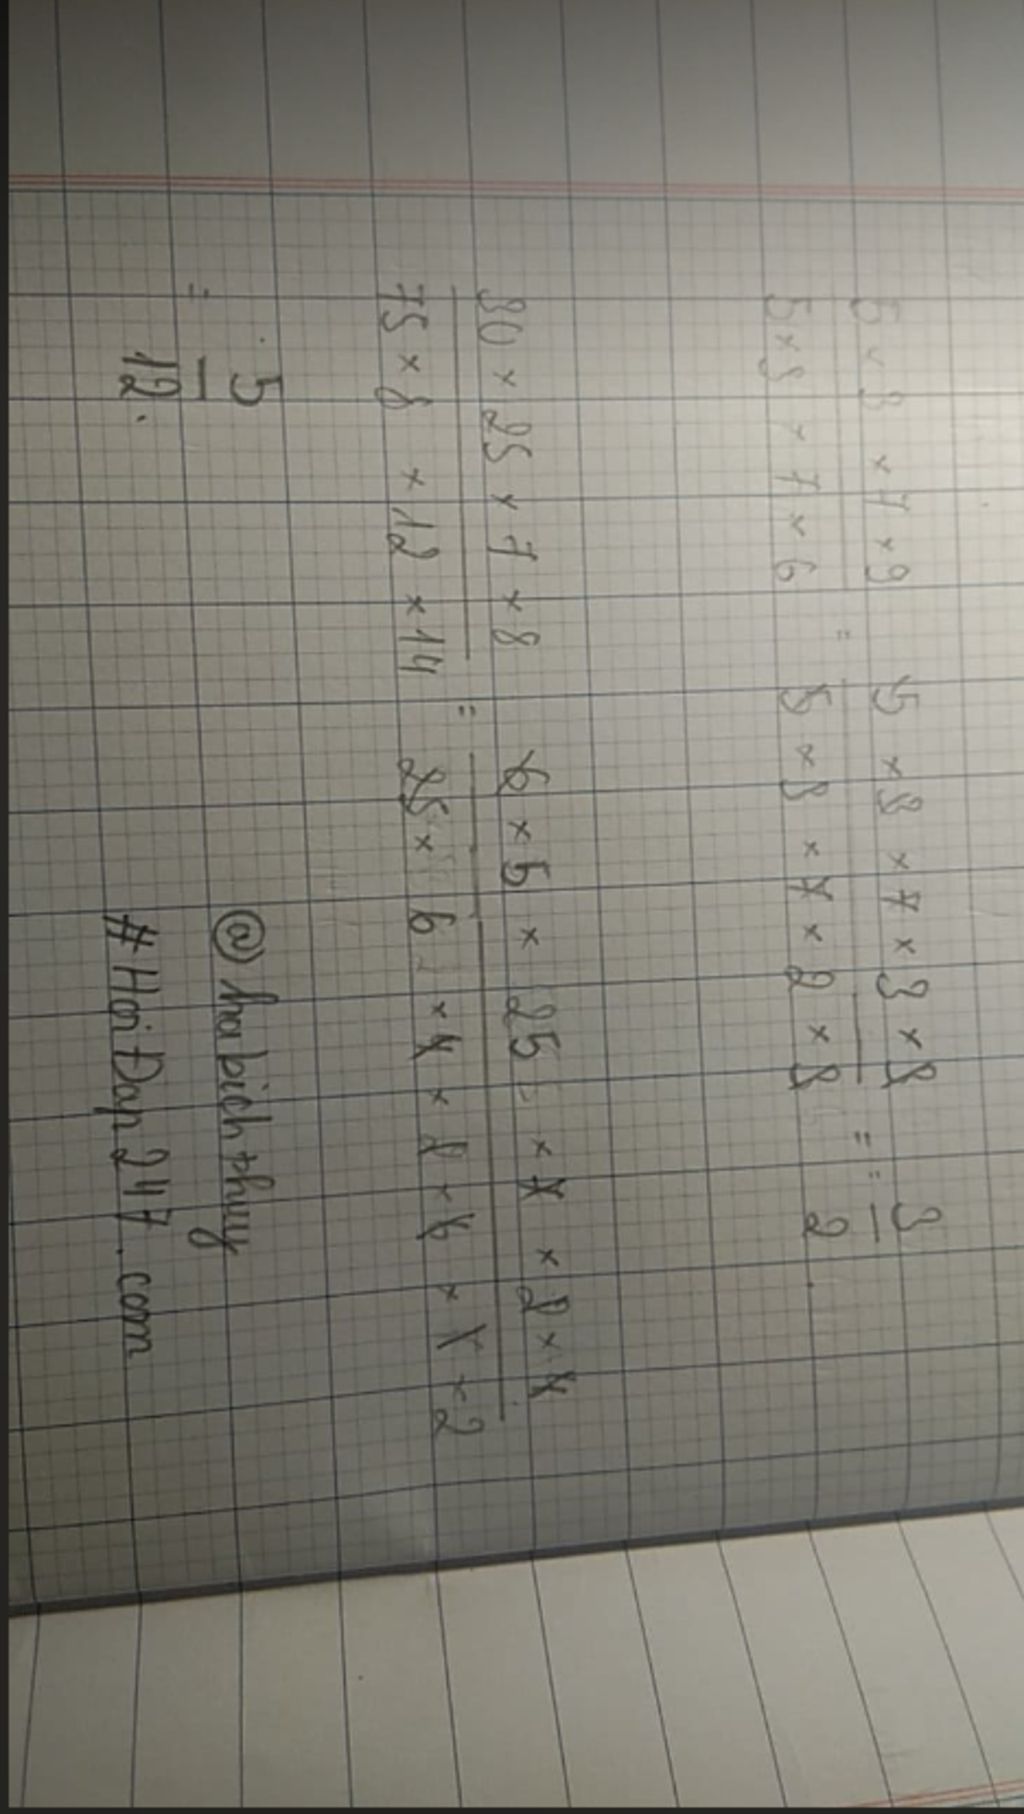 5 × 3 × 7 × 9
5 × 3 × 7 × 6
=
5 × 3 × 7 × 3 × 3
5 × 3 × 7 × 2 × 3
= =
3
2
30 × 25 × 7 × 8
75 × 8 × 12 × 14
=
6 × 5 × 25 × 7 × 2 × 4
=
5
12.
@habichthuy
#HoiDap247.com